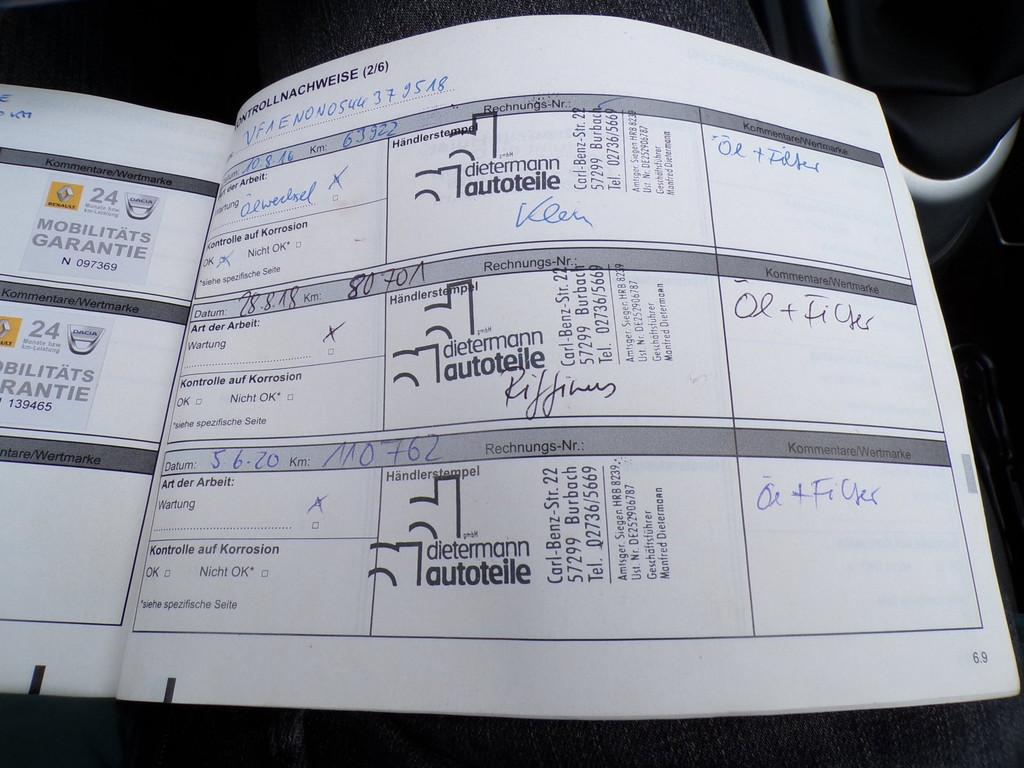 Kommentare/Wertmarke
RENAULT
24
Monate bzw
km-Leistung
DACIA
MOBILITÄTS
GARANTIE
N 097369
Kommentare/Wertmarke
24
Monate bzw
km-Leistung
DACIA
OBILITÄTS
RANTIE
139465
ntare/Wertmarke
ONTROLLNACHWEISE (2/6)
VF1ENON0544379518
Datum: 10.8.16 Km: 63922
Rechnungs-Nr.:
Kommentare/Wertmarke
Art der Arbeit:
Wartung
Ölwechsel
X
Kontrolle auf Korrosion
OK X Nicht OK*
*siehe spezifische Seite
Händlerstempel
dietermann
gmbH
autoteile
Carl-Benz-Str. 22
57299 Burbach
Tel. 02736/5669
Amtsger. Siegen HRB 8239
Ust. Nr. DE252906787
Geschäftsführer
Manfred Dietermann
Klein
Öl + Filter
Datum: 28.8.18 Km: 80701
Rechnungs-Nr.:
Kommentare/Wertmarke
Art der Arbeit:
Wartung
X
Kontrolle auf Korrosion
OK Nicht OK*
*siehe spezifische Seite
Händlerstempel
dietermann
gmbH
autoteile
Carl-Benz-Str. 22
57299 Burbach
Tel. 02736/5669
Amtsger. Siegen HRB 8239
Ust. Nr. DE252906787
Geschäftsführer
Manfred Dietermann
Öl + Filter
Datum: 5.6.20 Km: 110762
Rechnungs-Nr.:
Kommentare/Wertmarke
Art der Arbeit:
Wartung
X
Kontrolle auf Korrosion
OK Nicht OK*
*siehe spezifische Seite
Händlerstempel
dietermann
gmbH
autoteile
Carl-Benz-Str. 22
57299 Burbach
Tel. 02736/5669
Amtsger. Siegen HRB 8239
Ust. Nr. DE252906787
Geschäftsführer
Manfred Dietermann
Öl + Filter
6.9